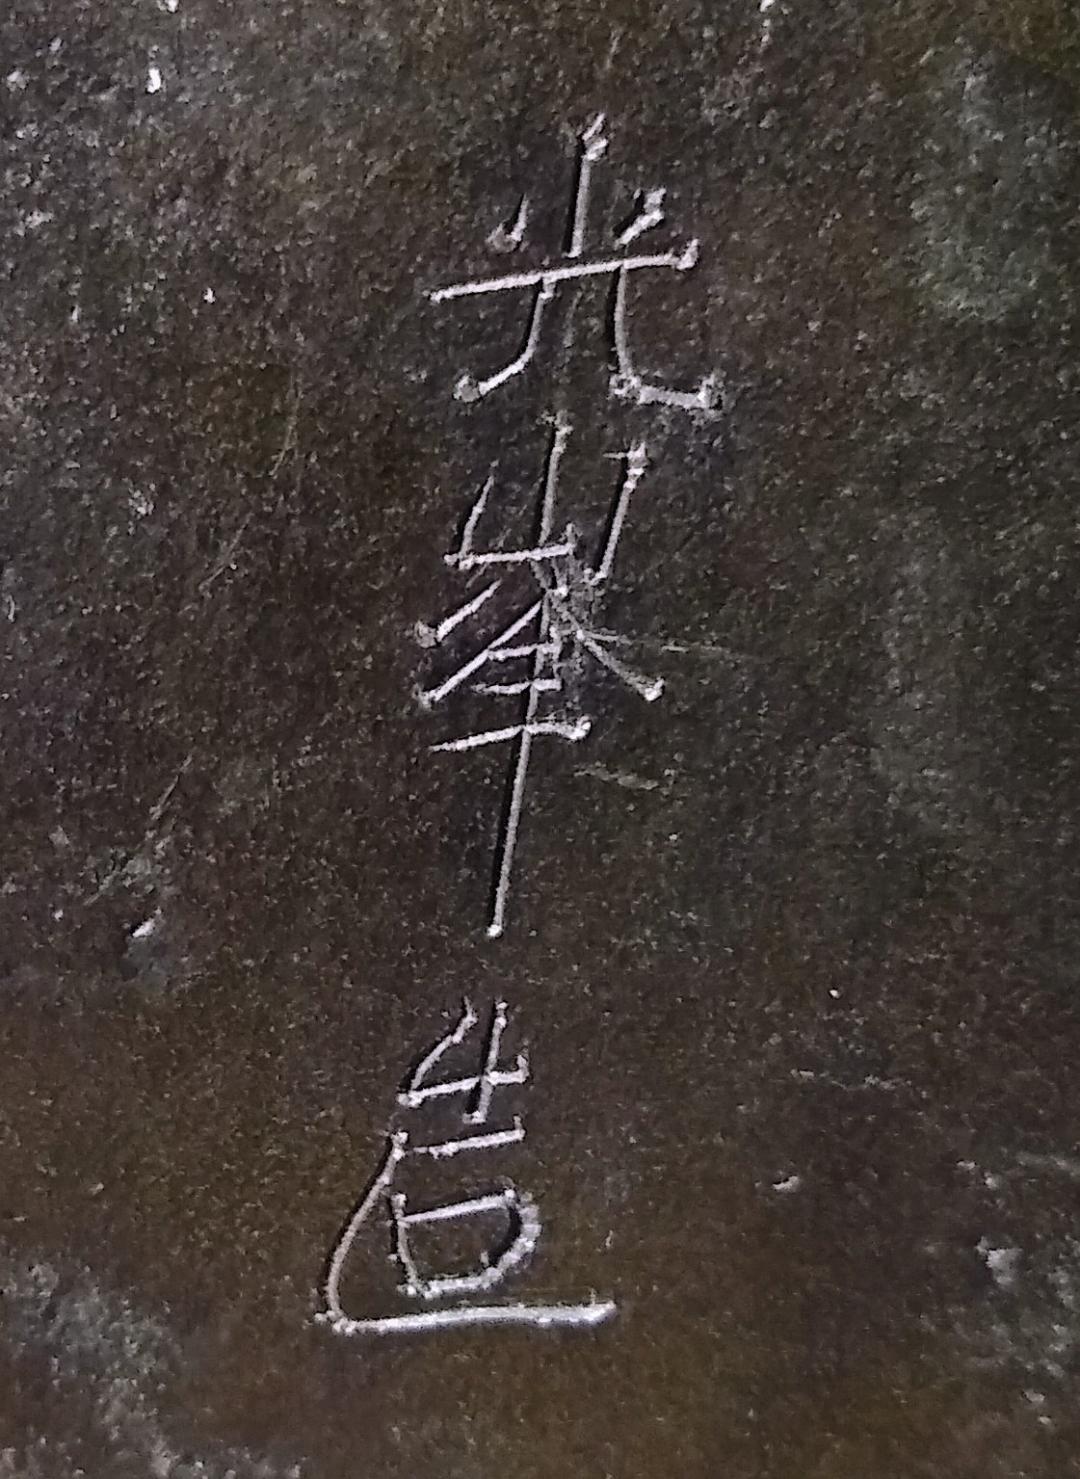 光峯造